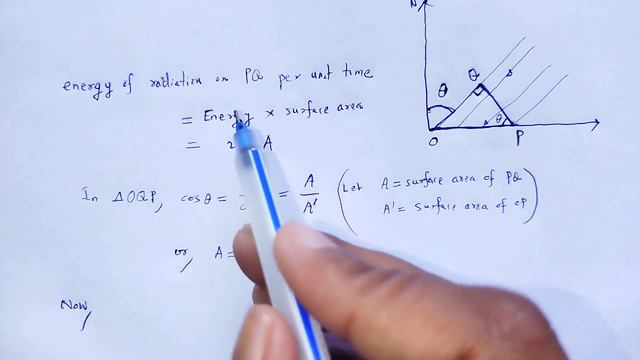 N
energy of radiation on PQ per unit time
= Energy × surface area
= A
In ΔOQP, cosθ = = A/A' (Let A = surface area of PQ
A' = surface area of OP)
or, A =
Now,
θ
Q
θ
O
P